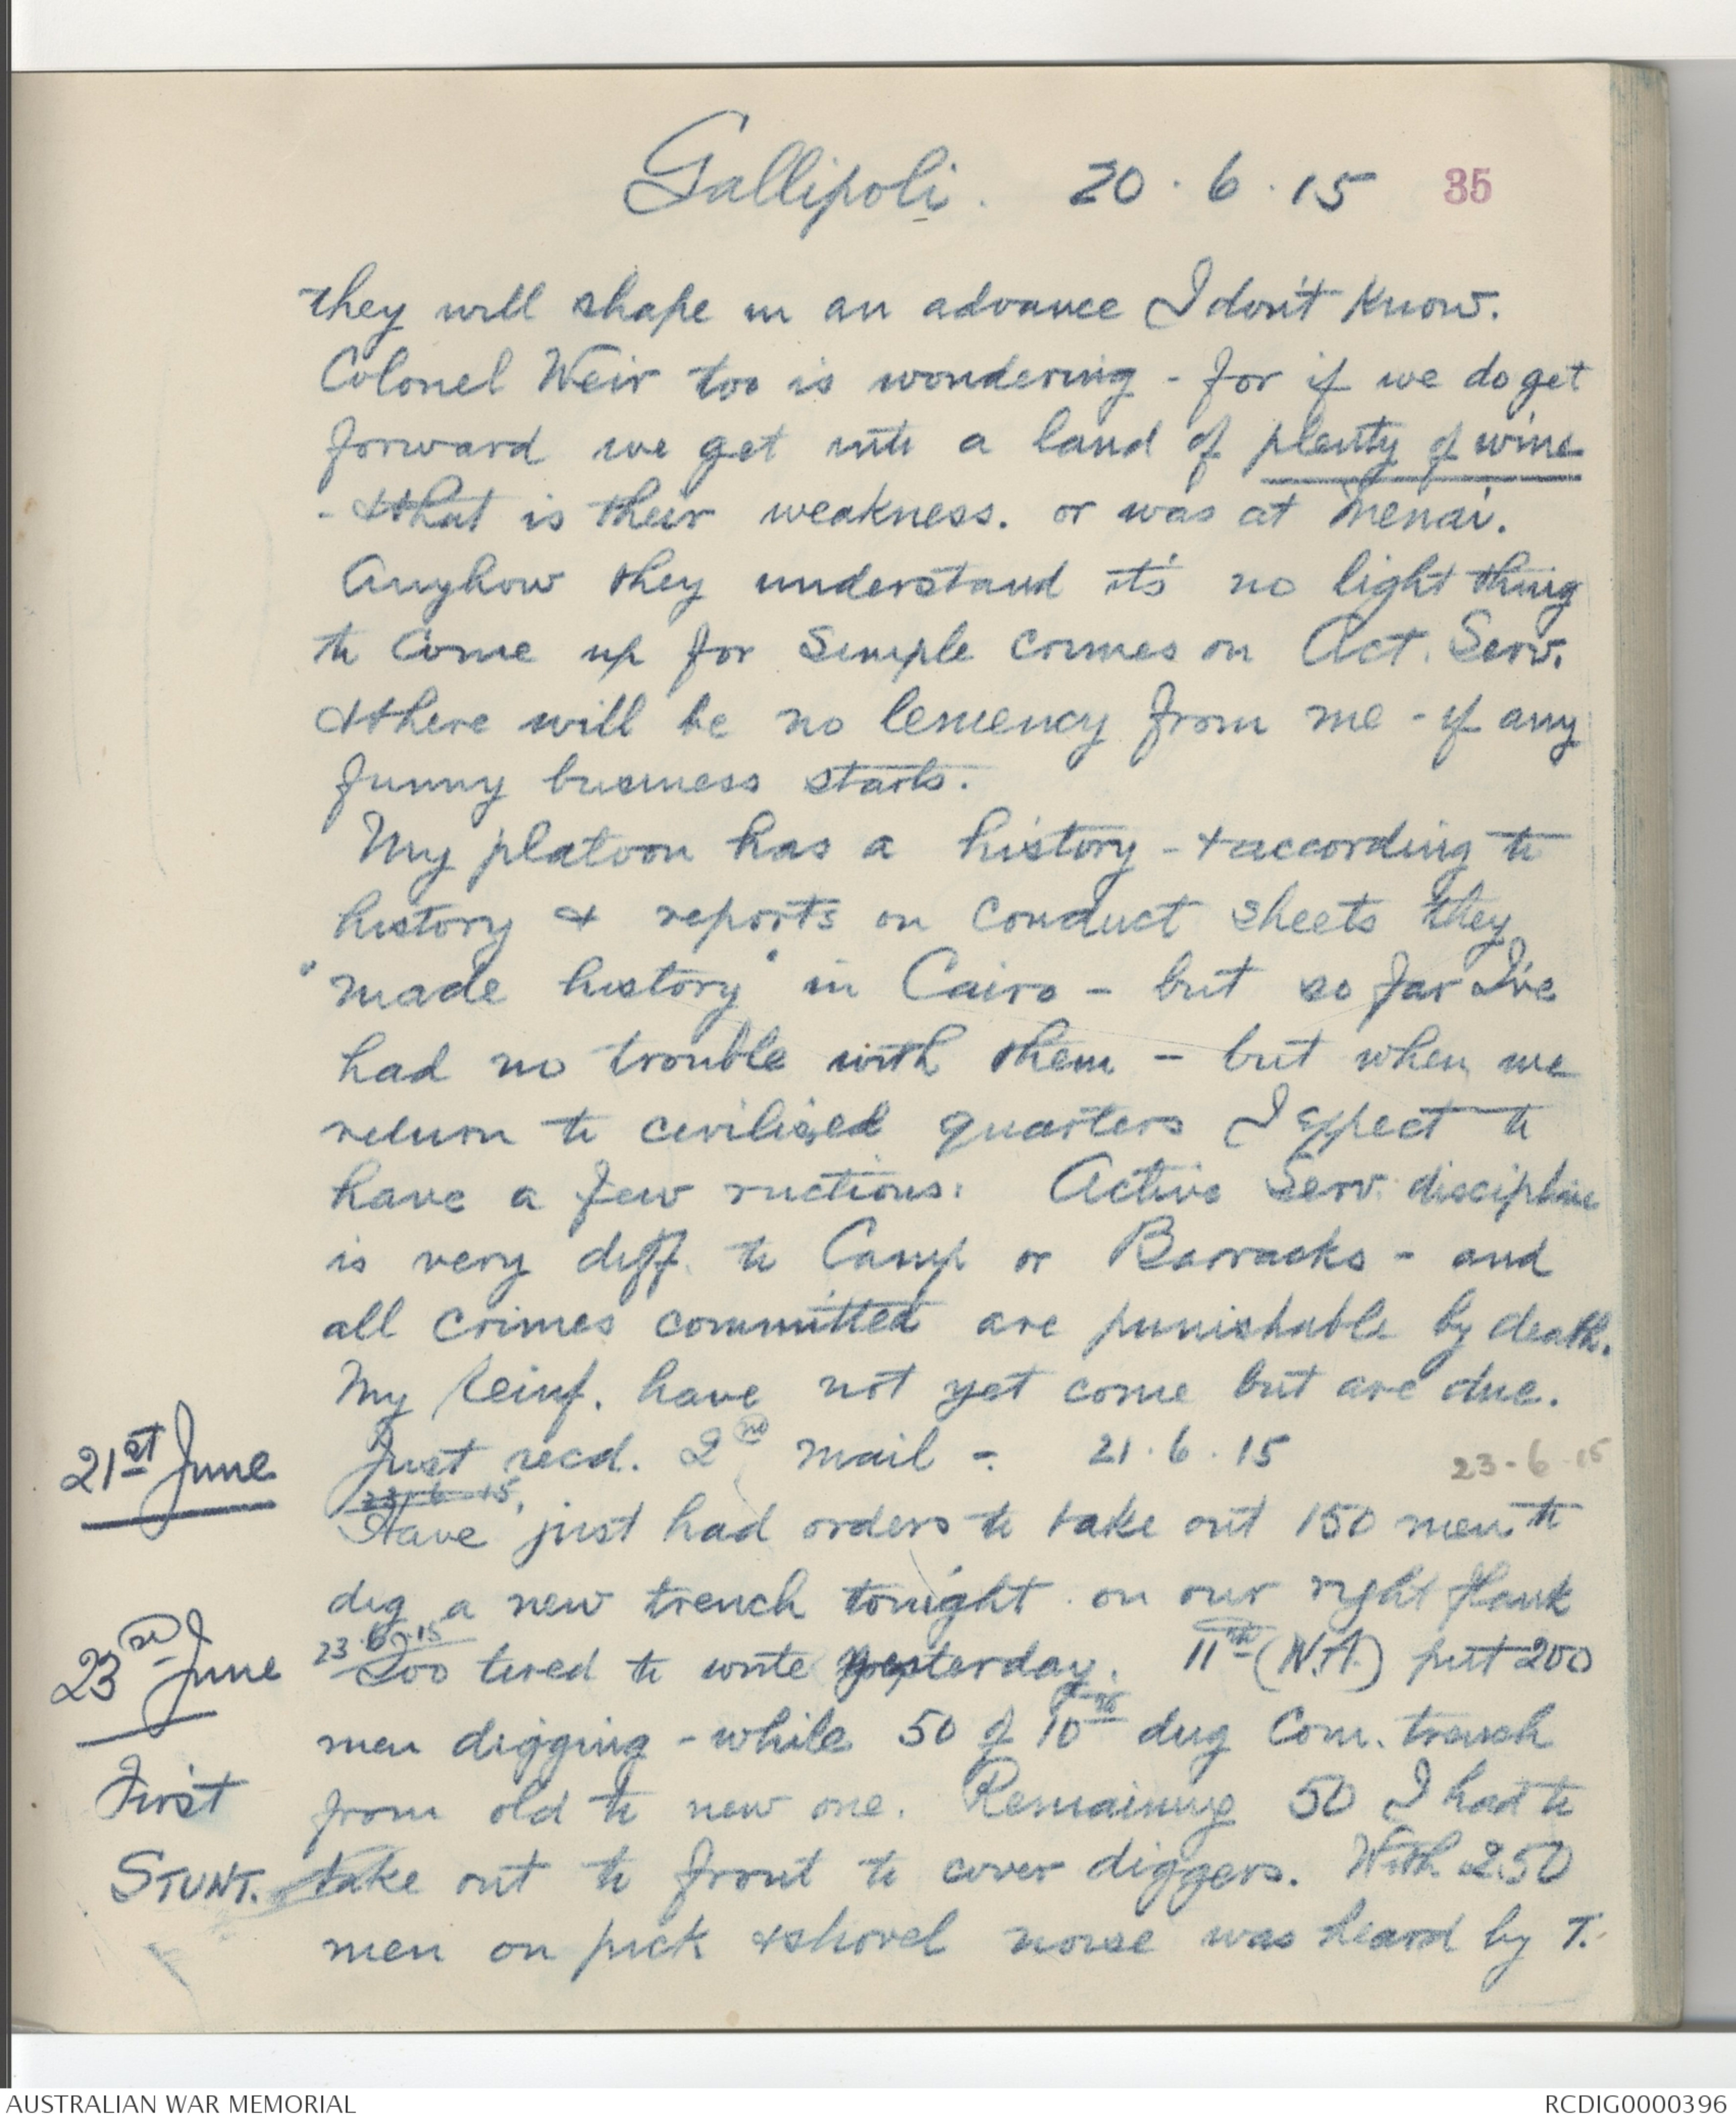 Gallipoli. 20.6.15 35
they will shape in an advance I don't know.
Colonel Weir too is wondering - for if we do get
forward we get into a land of plenty of wine
- & that is their weakness. or was at Menai.
Anyhow they understand it's no light thing
to come up for simple crimes on Act. Serv.
& there will be no leniency from me - if any
funny business starts.
My platoon has a history - & according to
history & reports on conduct sheets they
"made history" in Cairo - but so far I've
had no trouble with them - but when we
return to civilized quarters I expect to
have a few ructions. Active Serv. discipline
is very diff. to Camp or Barracks - and
all crimes committed are punishable by death.
My Reinf. have not yet come but are due.
21st June
Just recd. 2nd mail - 21.6.15 23-6-15
23-6-15
Have just had orders to take out 150 men to
dig a new trench tonight on our right flank
23rd June
23.6.15
Too tired to write yesterday. 11th (W.A.) put 200
men digging - while 50 of 10th dug Com. trench
First
from old to new one. Remaining 50 I had to
STUNT.
take out to front to cover diggers. With 250
men on pick & shovel noise was heard by T.
AUSTRALIAN WAR MEMORIAL RCDIG0000396